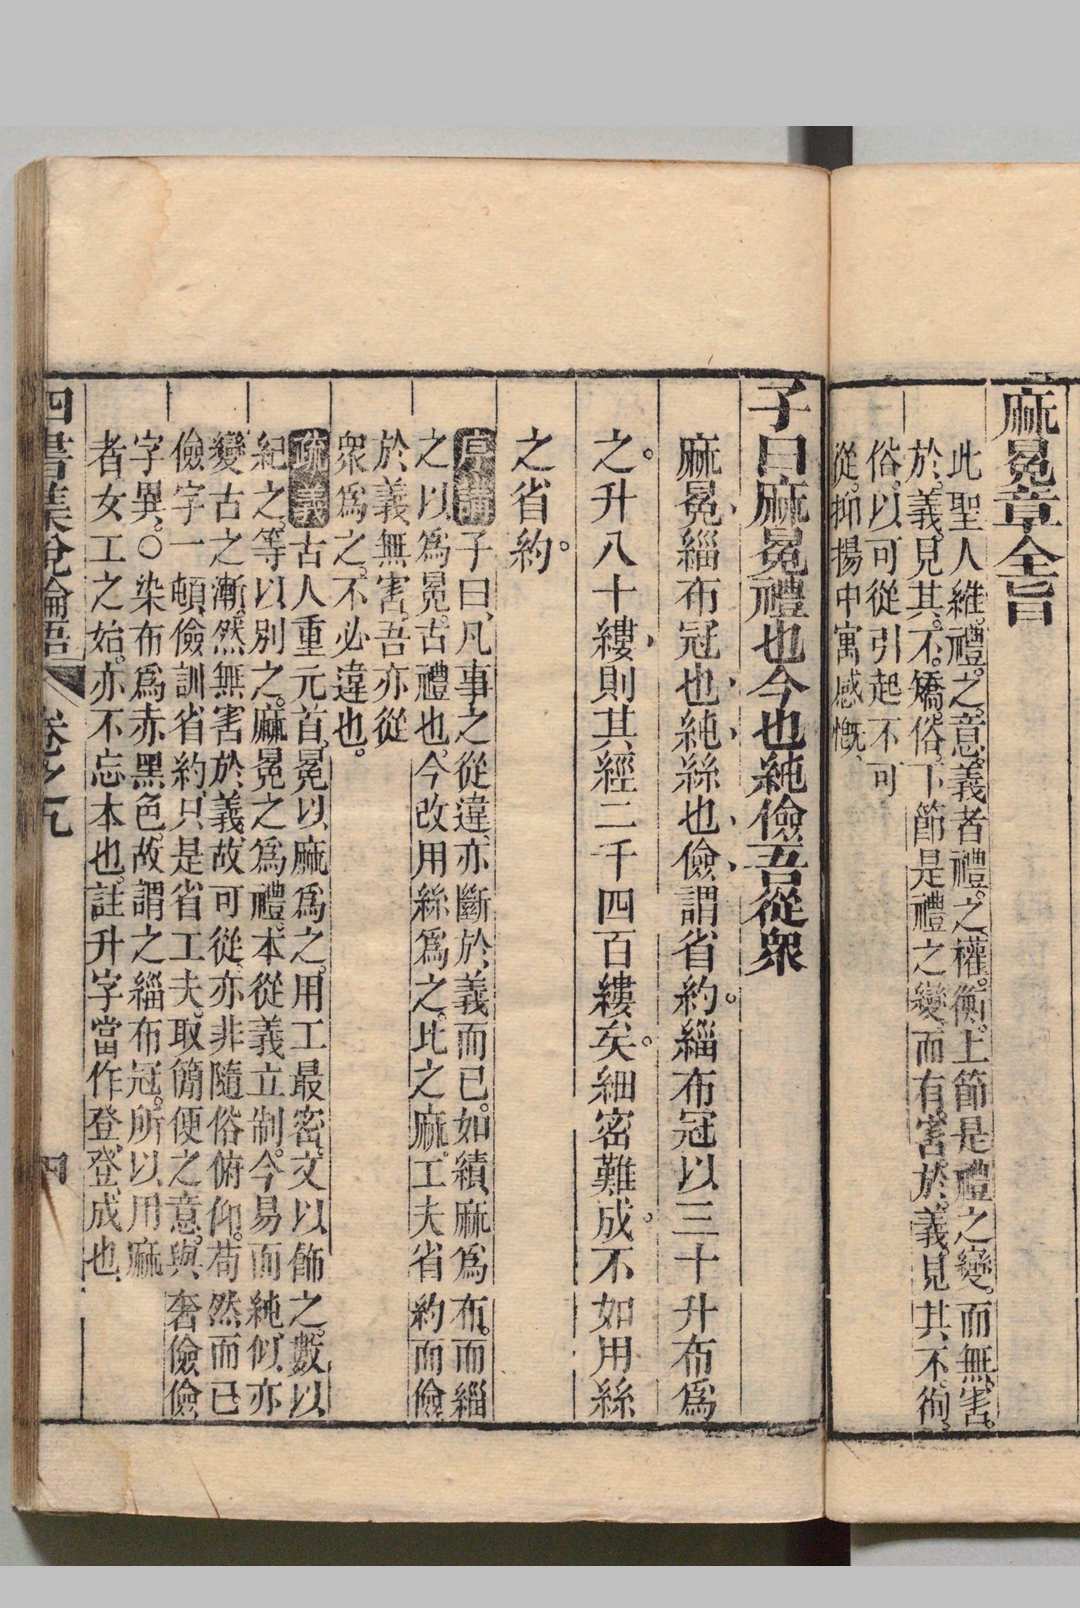 麻冕章全旨
此聖人維禮之意義者禮之權衡上節是禮之變而無害
於義見其不矯俗下節是禮之變而有害於義見其不徇
俗以可從引起不可
從抑揚中寓感慨
子曰麻冕禮也今也純儉吾從衆
麻冕緇布冠也純絲也儉謂省約緇布冠以三十升布爲
之升八十縷則其經二千四百縷矣細密難成不如用絲
之省約
子曰凡事之從違亦斷於義而已如績麻爲布而緇
之以爲冕古禮也今改用絲爲之比之麻工夫省約而儉
於義無害吾亦從
衆爲之不必違也
疏義古人重元首冕以麻爲之用工最密文以飾之數以
紀之等以別之麻冕之爲禮本從義立制今易而純似亦
變古之漸然無害於義故可從亦非隨俗俯仰苟然而已
儉字一頓儉訓省約只是省工夫取簡便之意與奢儉儉
字異○染布爲赤黑色故謂之緇布冠所以用麻
者女工之始亦不忘本也註升字當作登登成也
四書集說論語 卷之九 四